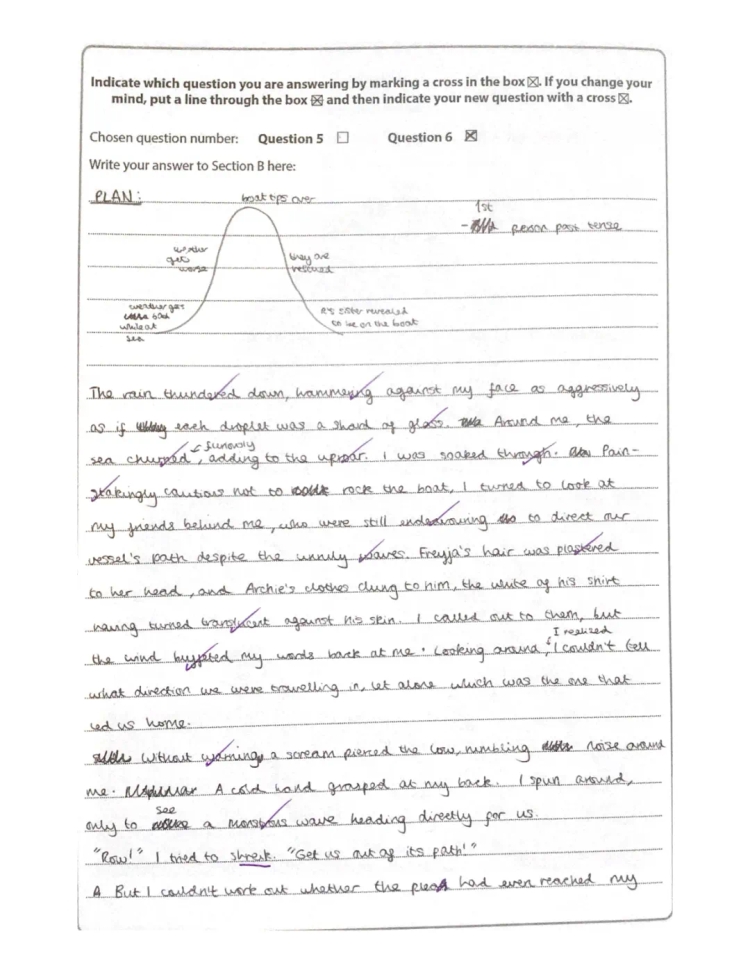 Indicate which question you are answering by marking a cross in the box ☒. If you change your
mind, put a line through the box and then indicate your new question with a cross ☒.
Chosen question number: Question 5 ☐ Question 6 ☒
Write your answer to Section B here:
PLAN:
boat tips over
1st
- person past tense
weather
gets
worse
they are
rescued
weather gets
bad
while at
sea
it's sister revealed
to be on the boat
The rain thundered down, hammering against my face as aggressively
as if each droplet was a shard of glass. Around me, the
sea churned furiously, adding to the uproar. I was soaked through. Pain-
stakingly cautious not to rock the boat, I turned to look at
my friends behind me, who were still endeavouring to direct our
vessel's path despite the unruly waves. Freyja's hair was plastered
to her head, and Archie's clothes clung to him, the white of his shirt
having turned translucent against his skin. I called out to them, but
the wind buffeted my words back at me. Looking around, I realized I couldn't tell
what direction we were travelling in, let alone which was the one that
led us home.
Without warning, a scream pierced the low, rumbling noise around
me. A cold hand grasped at my back. I spun around,
only to see a monstrous wave heading directly for us.
"Row!" I tried to shreik. "Get us out of its path!"
A But I couldn't work out whether the plea had even reached my